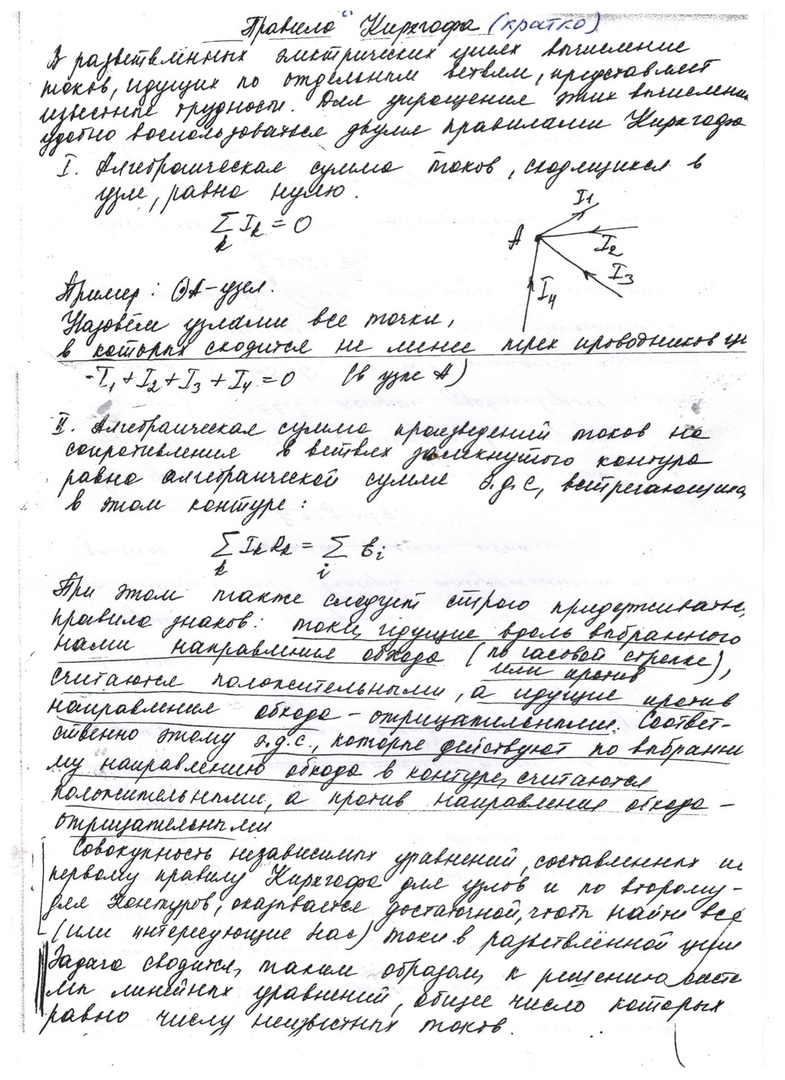 Правила Кирхгофа (кратко)
В разветвлённых электрических цепях вычисление
токов, идущих по отдельным ветвям, представляет
известные трудности. Для упрощения этих вычислени
удобно воспользоваться двумя правилами Кирхгофа
I. Алгебраическая сумма токов, сходящихся в
узле, равна нулю.
∑ Iₖ = 0
k
I₁
A
I₂
I₃
I₄
Пример: A-узел.
Назовём узлами все точки,
в которых сходится не менее трех проводников це
-I₁ + I₂ + I₃ + I₄ = 0 (в узле A)
II. Алгебраическая сумма произведений токов на
сопротивления в ветвях замкнутого контура
равна алгебраической сумме э.д.с, встречающихся
в этом контуре:
∑ IₖRₖ = ∑ Ɛᵢ
k i
При этом также следует строго придерживаться
правила знаков: токи, идущие вдоль выбранного
нами направления обхода (по часовой стрелке),
или против
считаются положительными, а идущие против
направления обхода - отрицательными. Соответ-
ственно этому э.д.с., которые действуют по выбранно
му направлению обхода в контуре, считаются
положительными, а против направления обхода -
отрицательными
Совокупность независимых уравнений, составленных по
первому правилу Кирхгофа для узлов и по второму -
для контуров, оказывается достаточной, чтоб найти все
(или интересующие нас) токи в разветвлённой цепи
Задача сводится, таким образом, к решению систе
мы линейных уравнений, общее число которых
равно числу неизвестных токов.